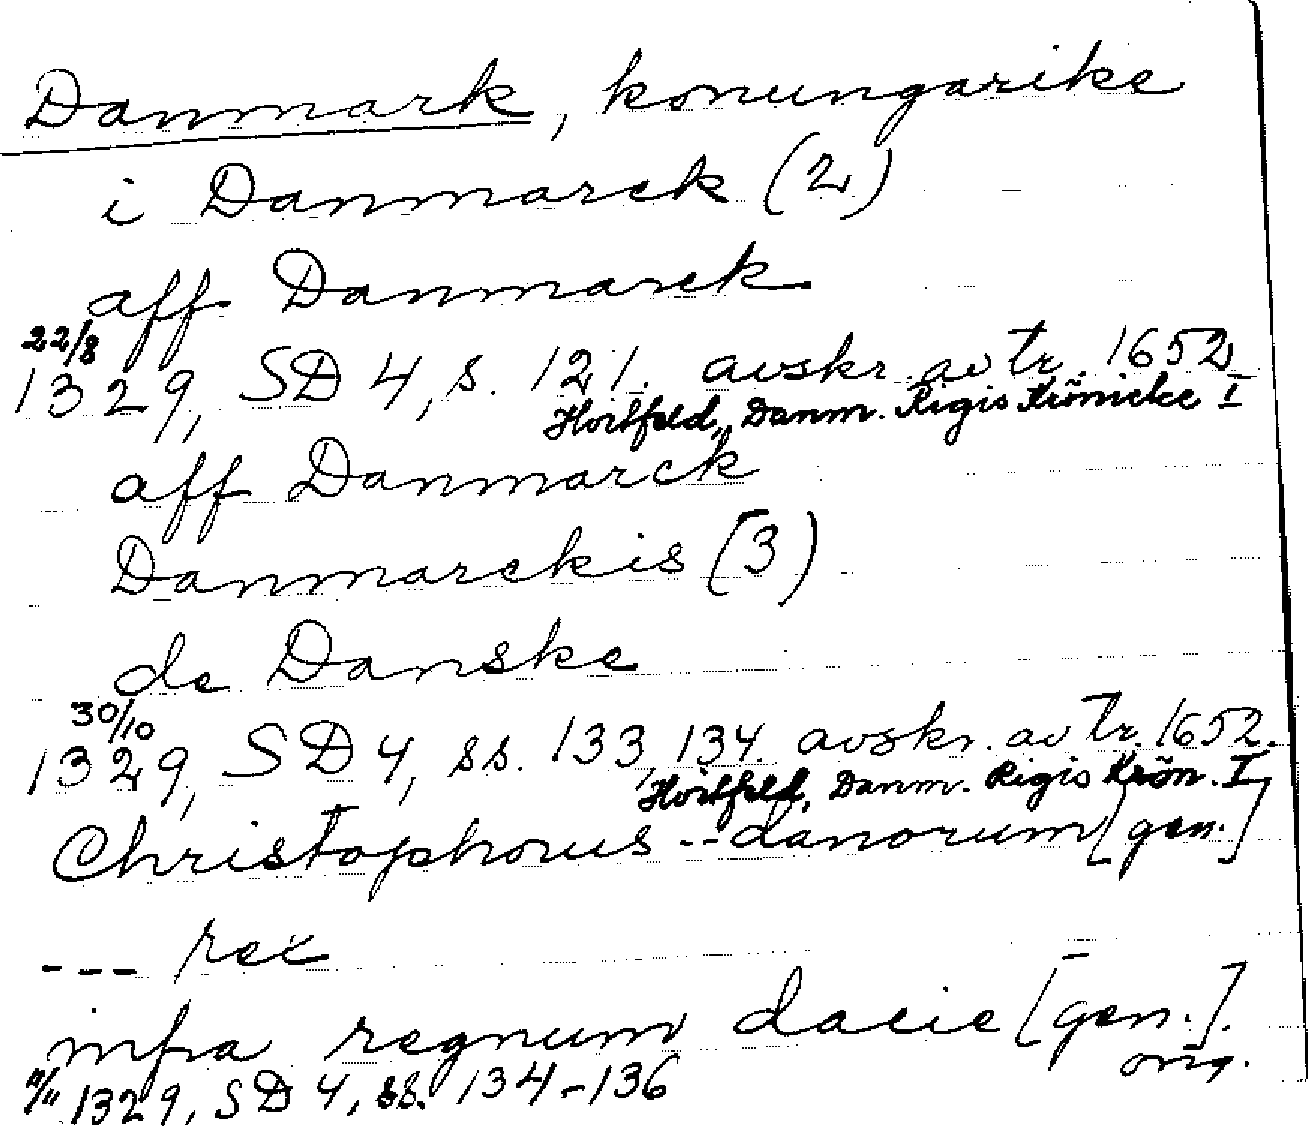 Danmark, konungarike
i Danmarck (2)
aff Danmarck
22/8
1329, SD 4, s. 121. avskr. av tr. 1652
Hvitfeld, Danm. Rigis Krönicke I
aff Danmarck
Danmarckis (3)
de Danske
30/10
1329, SD 4, ss. 133, 134. avskr. av tr. 1652.
Hvitfeld, Danm. Rigis Krön. I
Christophorus -- danorum [gen.]
--- rex
infra regnum dacie [gen.].
11/11 1329, SD 4, ss. 134-136 orig.